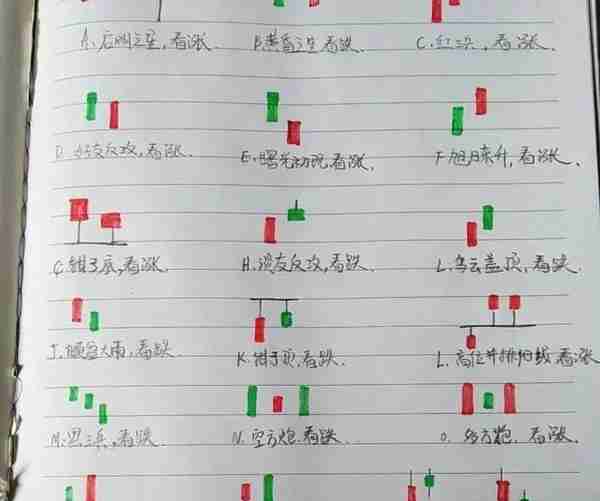 A.启明之星,看涨.
B.黄昏之星,看跌.
C.红三兵,看涨.
D.好友反攻,看涨.
E.曙光初现,看涨.
F.旭日东升,看涨.
G.钳子底,看涨.
H.淡友反攻,看跌.
L.乌云盖顶,看跌.
J.倾盆大雨,看跌.
K.钳子顶,看跌.
L.高位并排阳线,看涨
M.黑三兵,看跌
N.空方炮,看跌.
O.多方炮,看涨.